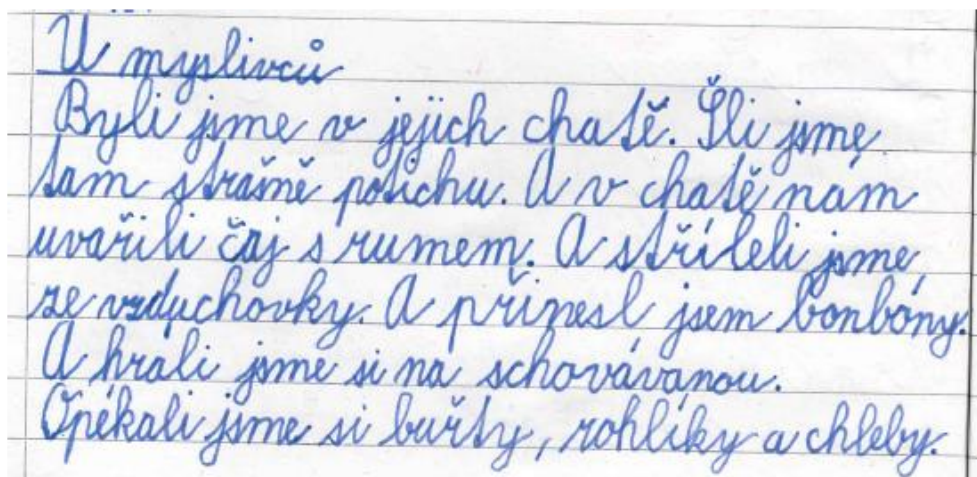 U myslivců
Byli jsme v jejich chatě. Šli jsme
tam strašně potichu. A v chatě nám
uvařili čaj s rumem. A stříleli jsme
ze vzduchovky. A přinesl jsem bonbóny.
A hráli jsme si na schovávanou.
Opékali jsme si buřty, rohlíky a chleby.